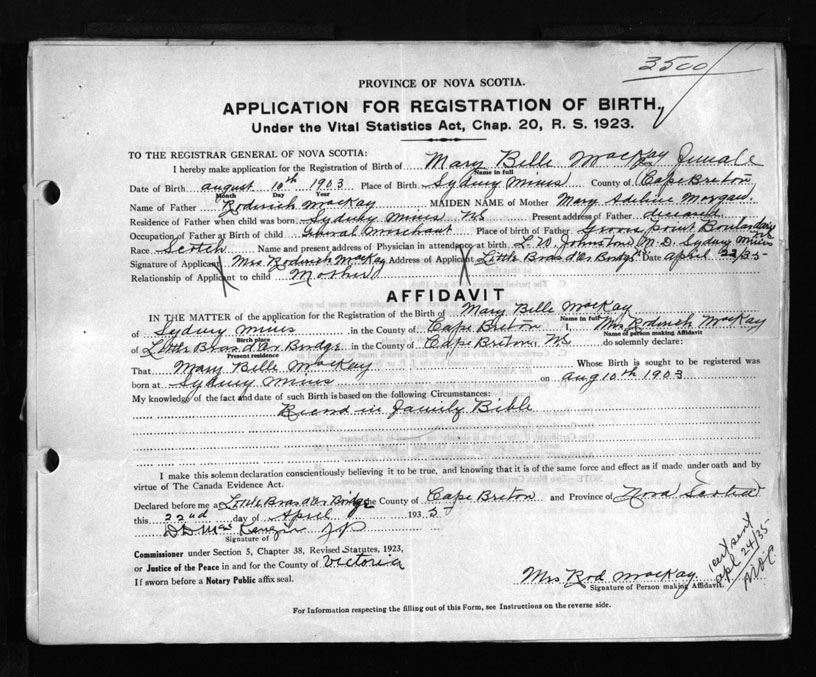 3500
PROVINCE OF NOVA SCOTIA.
APPLICATION FOR REGISTRATION OF BIRTH,
Under the Vital Statistics Act, Chap. 20, R. S. 1923.
TO THE REGISTRAR GENERAL OF NOVA SCOTIA:
I hereby make application for the Registration of Birth of Mary Belle MacKay Female
Name in full Sex
Date of Birth August 10th 1903 Place of Birth Sydney Mines County of Cape Breton
Month Day Year
Name of Father Roderick MacKay MAIDEN NAME of Mother Mary Adeline Morgan
Residence of Father when child was born Sydney Mines NS Present address of Father deceased
Occupation of Father at Birth of child General Merchant Place of Birth of Father Groves Point Boularderie
Race Scotch Name and present address of Physician in attendance at birth L. W. Johnstone M. D. Sydney Mines
Signature of Applicant Mrs Roderick MacKay Address of Applicant Little Bras d'Or Bridge Date April 22/35
Relationship of Applicant to child Mother
AFFIDAVIT
IN THE MATTER of the application for the Registration of the Birth of Mary Belle MacKay
Name in full
of Sydney Mines in the County of Cape Breton I, Mrs Roderick MacKay
Birth place Name of person making Affidavit
of Little Bras d'Or Bridge in the County of Cape Breton, NS do solemnly declare:
Present residence
That Mary Belle MacKay Whose Birth is sought to be registered was
born at Sydney Mines on Aug 10th 1903
My knowledge of the fact and date of such Birth is based on the following Circumstances:
Record in Family Bible
I make this solemn declaration conscientiously believing it to be true, and knowing that it is of the same force and effect as if made under oath and by
virtue of The Canada Evidence Act.
Declared before me a Little Bras d'Or Bridge the County of Cape Breton and Province of Nova Scotia
this 22nd day of April 1935
D D MacKenzie J P
Signature of
Commissioner under Section 5, Chapter 38, Revised Statutes, 1923,
or Justice of the Peace in and for the County of Victoria
If sworn before a Notary Public affix seal.
Mrs Rod MacKay
Signature of Person making Affidavit.
1 cert sent
Apl 24/35
For Information respecting the filling out of this Form, see Instructions on the reverse side.